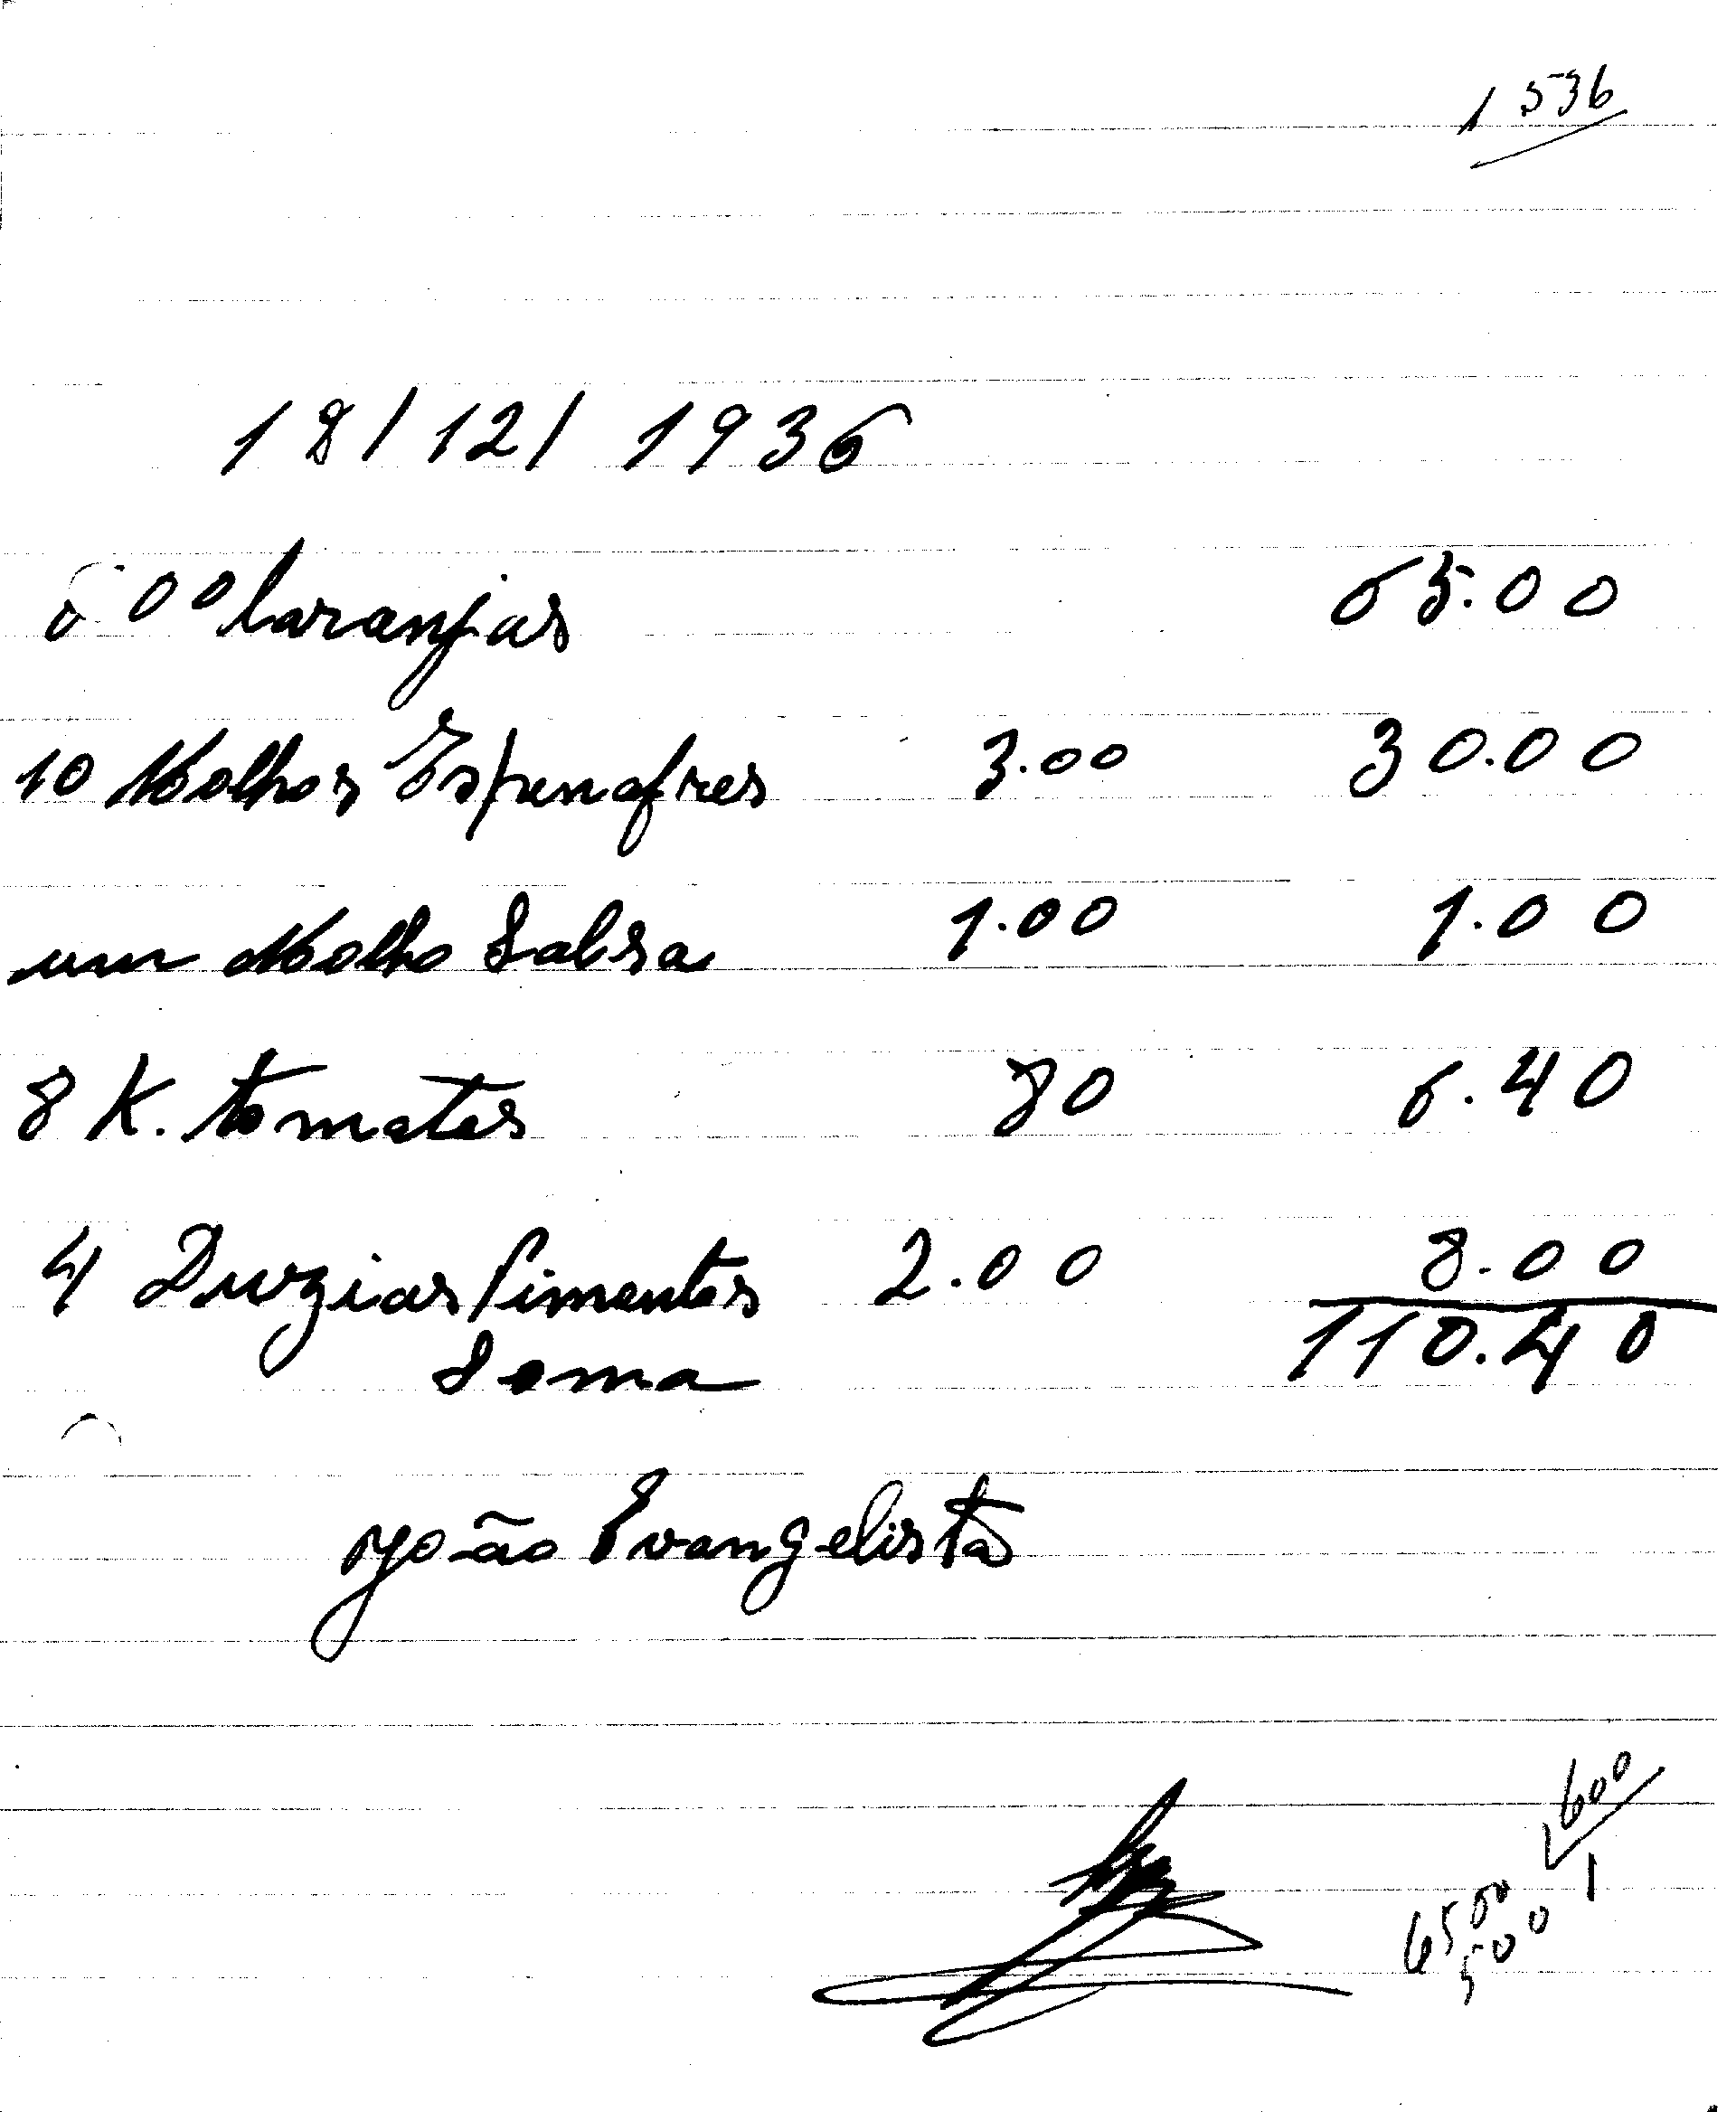 1536
18/12/1936
600 laranjas 65.00
10 Molhos Espenafres 3.00 30.00
um Molho Salsa 1.00 1.00
8 K. tomates 80 6.40
4 Duzias Pimentos 2.00 8.00
Soma 110.40
João Evangelista
600
1
65
500